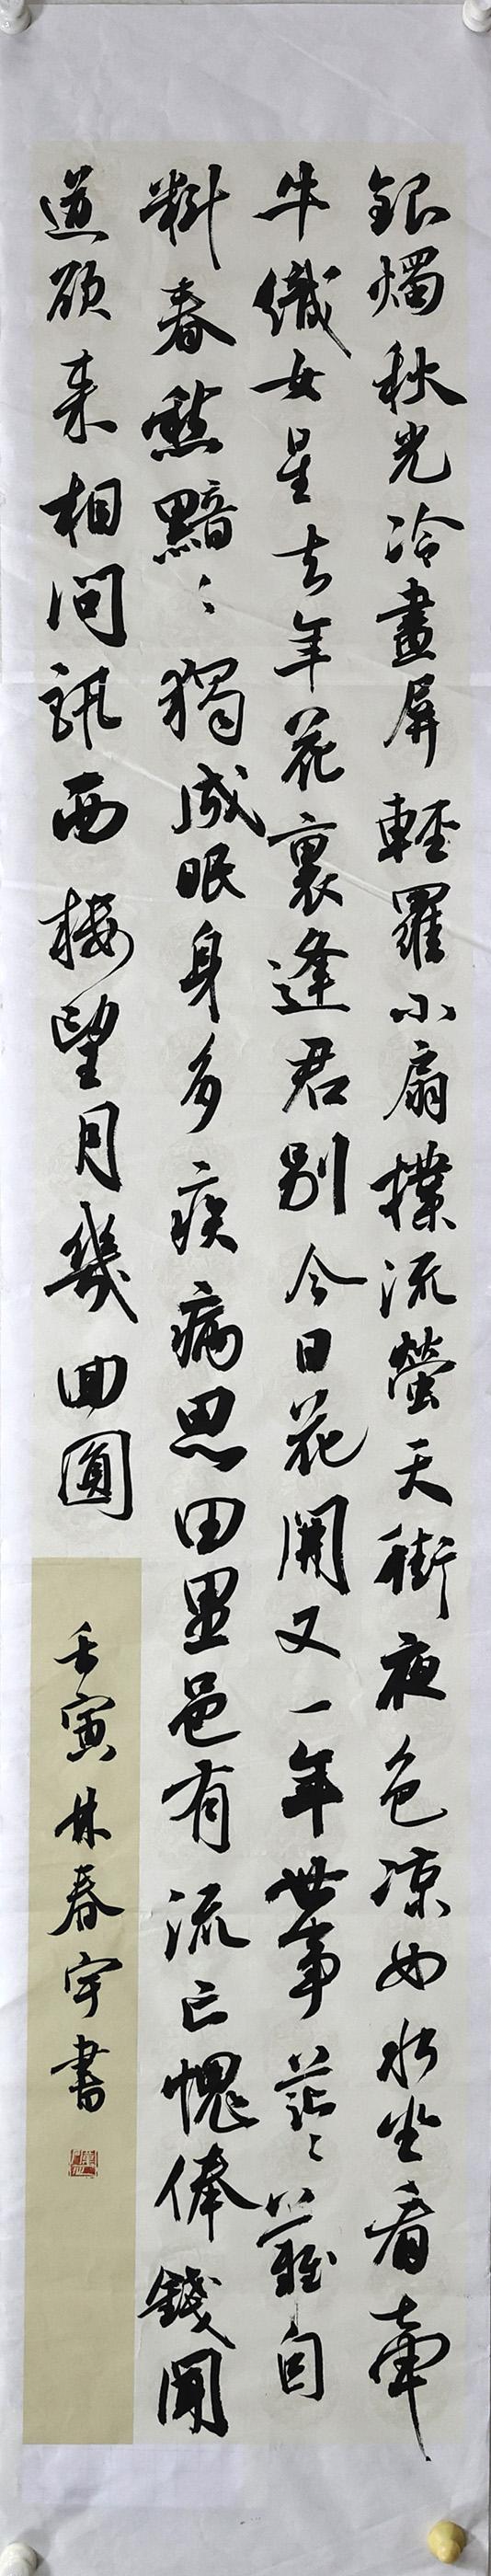 銀燭秋光冷畫屏輕羅小扇撲流螢天街夜色凉如水坐看牽
牛織女星去年花裏逢君别今日花開又一年世事茫〻難自
料春愁黯〻獨成眠身多疾病思田里邑有流亡愧俸錢聞
道欲来相問訊西樓望月幾回圓
壬寅林春宇書